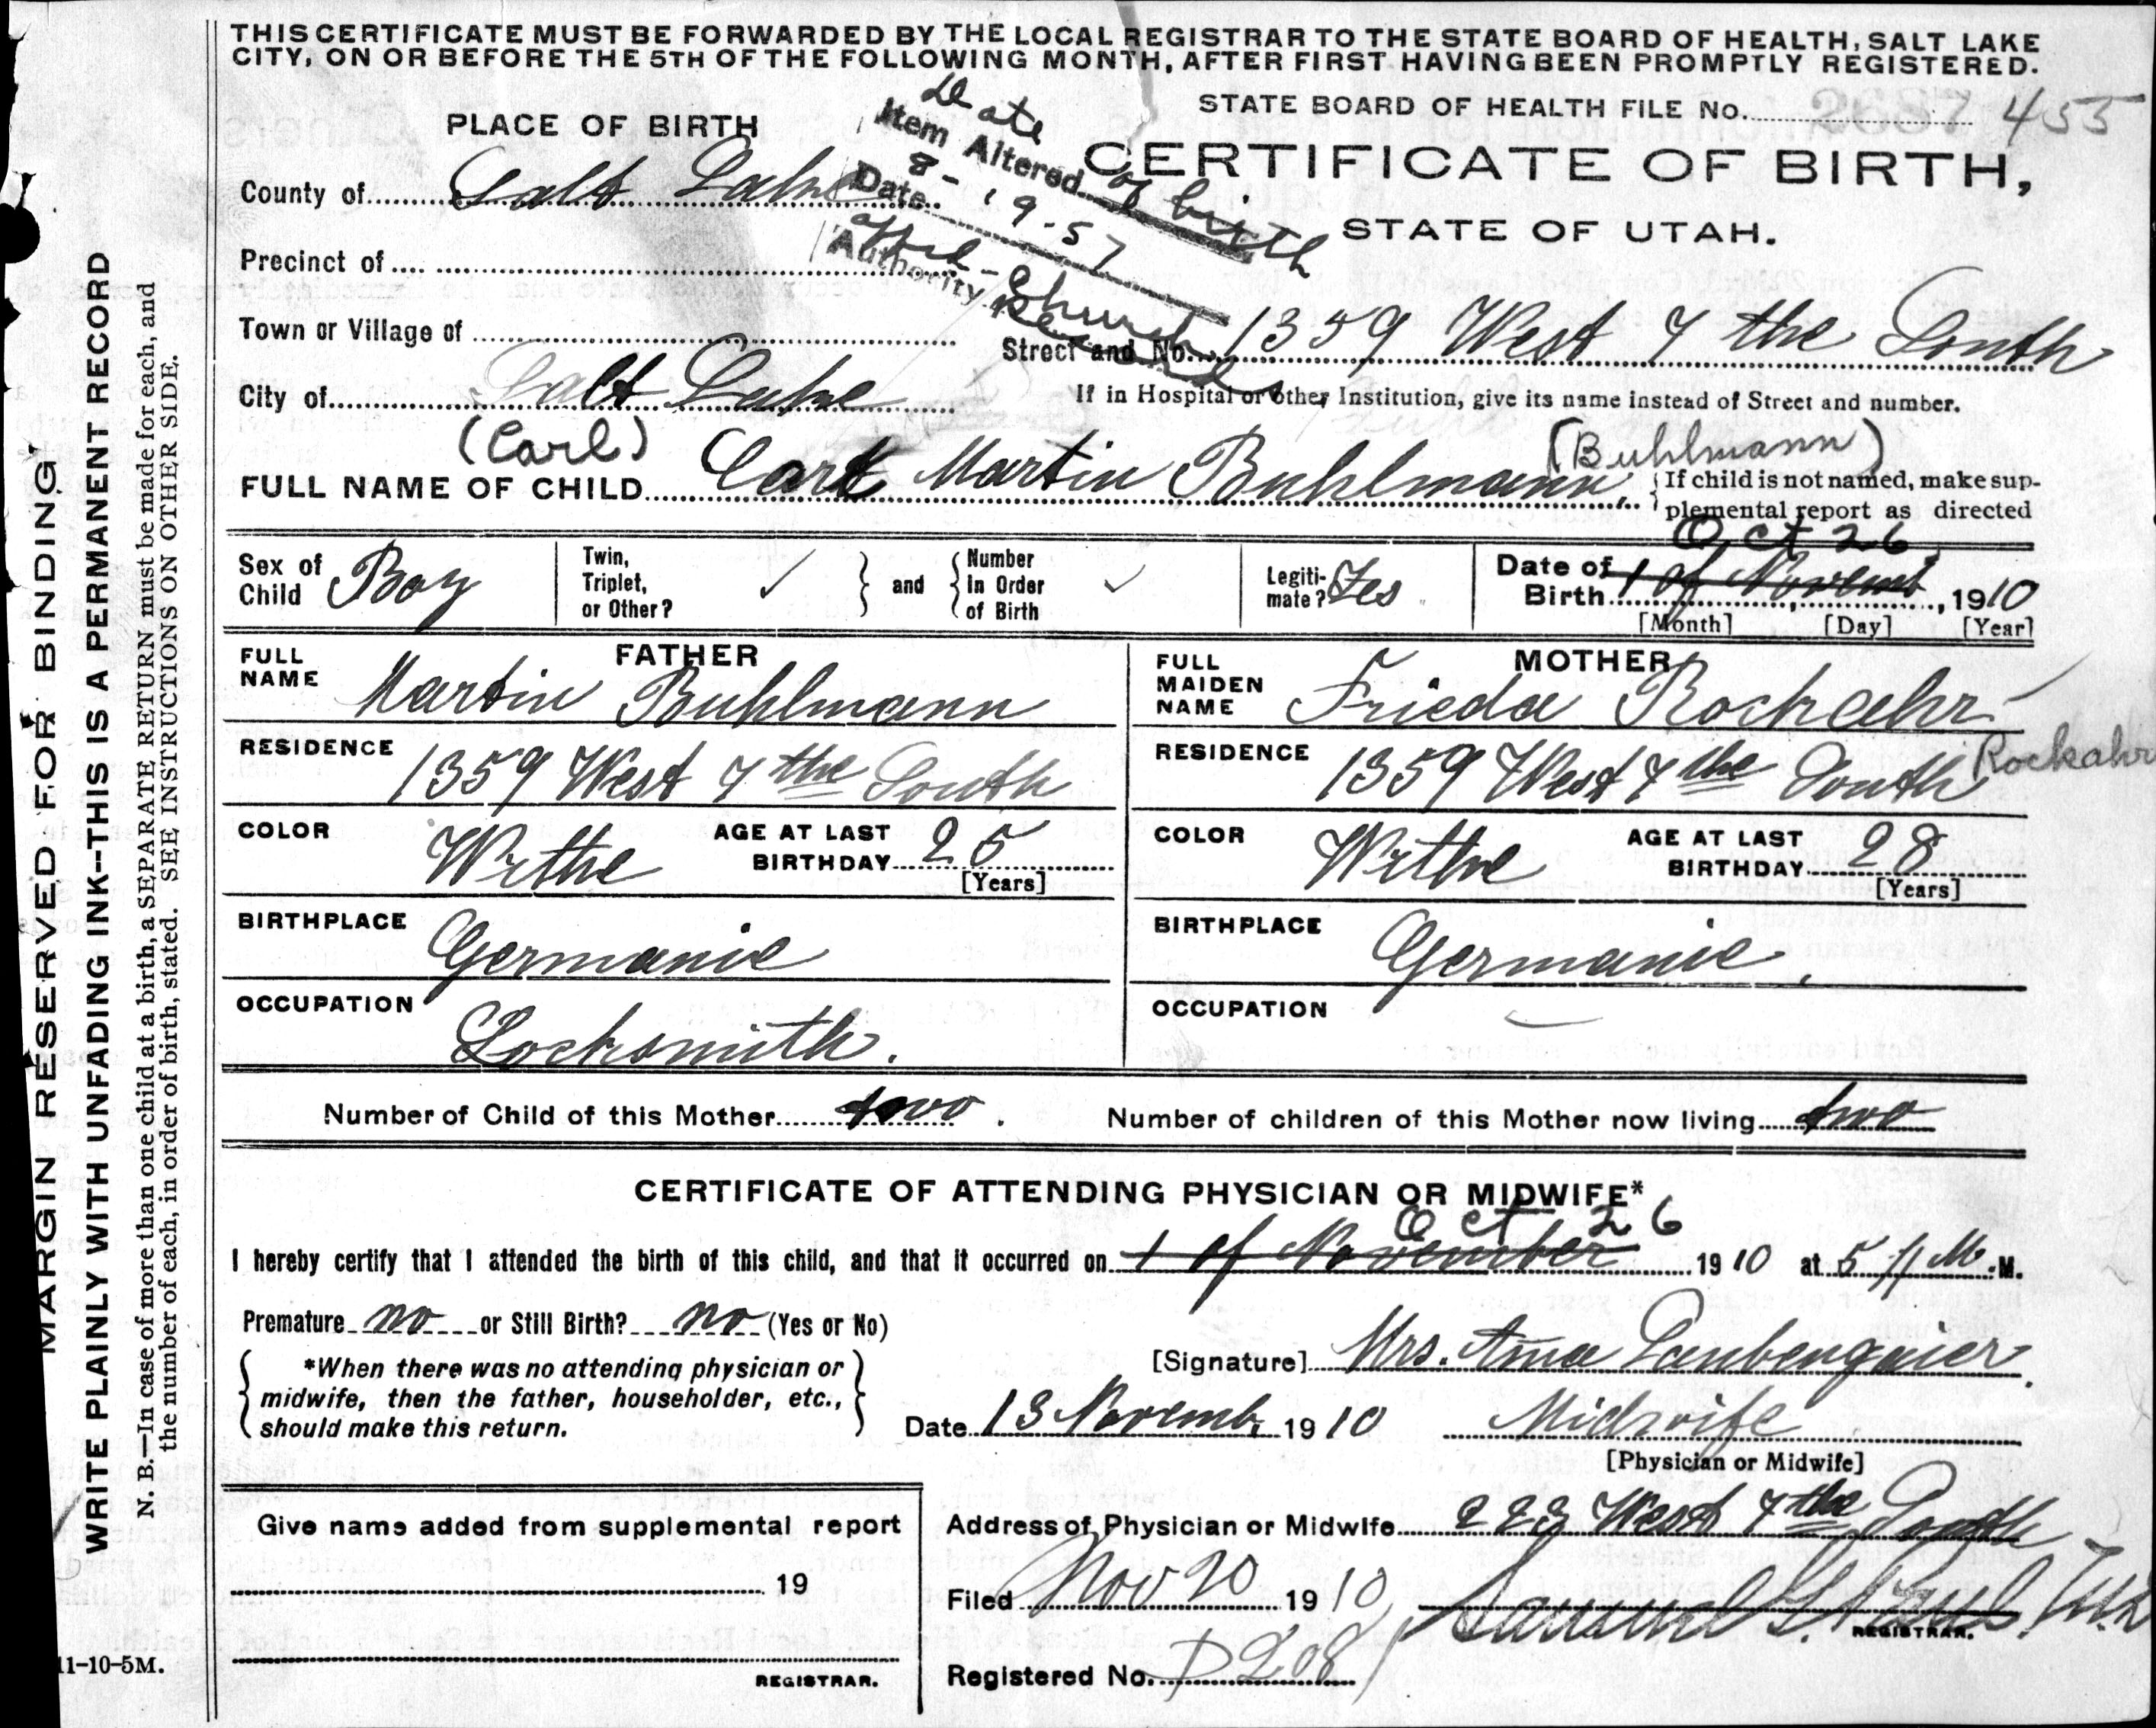 THIS CERTIFICATE MUST BE FORWARDED BY THE LOCAL REGISTRAR TO THE STATE BOARD OF HEALTH, SALT LAKE
CITY, ON OR BEFORE THE 5TH OF THE FOLLOWING MONTH, AFTER FIRST HAVING BEEN PROMPTLY REGISTERED.
STATE BOARD OF HEALTH FILE No. 2687 455
PLACE OF BIRTH
CERTIFICATE OF BIRTH,
STATE OF UTAH.
Item Altered Date of birth
Date 8-19-57
Authority Church Records
County of Salt Lake
Precinct of
Town or Village of
Street and No. 1359 West 7 the South
City of Salt Lake
If in Hospital or other Institution, give its name instead of Street and number.
(Carl) (Buhlmann)
FULL NAME OF CHILD Carl Martin Buhlmann.
If child is not named, make sup-
plemental report as directed
Sex of Child Boy
Twin, Triplet, or Other? ✓
and
Number In Order of Birth ✓
Legiti-mate? Yes
Oct 26
Date of Birth 1 of Novemb, 1910
[Month] [Day] [Year]
FATHER
FULL NAME Martin Buhlmann
RESIDENCE 1359 West 7 the South
COLOR Withe AGE AT LAST BIRTHDAY 25
[Years]
BIRTHPLACE Germanie
OCCUPATION Locksmith.
MOTHER
FULL MAIDEN NAME Frieda Rockaehr
Rockahr
RESIDENCE 1359 West 7 the South
COLOR Withe AGE AT LAST BIRTHDAY 28
[Years]
BIRTHPLACE Germanie.
OCCUPATION
Number of Child of this Mother two. Number of children of this Mother now living two
CERTIFICATE OF ATTENDING PHYSICIAN OR MIDWIFE*
Oct 26
I hereby certify that I attended the birth of this child, and that it occurred on 1 of November 1910 at 5 M.
Premature no or Still Birth? no (Yes or No)
*When there was no attending physician or
midwife, then the father, householder, etc.,
should make this return.
[Signature] Mrs. Anna
Date 13 Novemb. 1910 Midwife
[Physician or Midwife]
Give name added from supplemental report
19
REGISTRAR.
Address of Physician or Midwife 223 West 7 the South
Filed Nov 20 1910 Samuel G. Paul
REGISTRAR.
Registered No. D208
11-10-5M.
MARGIN RESERVED FOR BINDING
WRITE PLAINLY WITH UNFADING INK--THIS IS A PERMANENT RECORD
N. B.—In case of more than one child at a birth, a SEPARATE RETURN must be made for each, and
the number of each, in order of birth, stated. SEE INSTRUCTIONS ON OTHER SIDE.